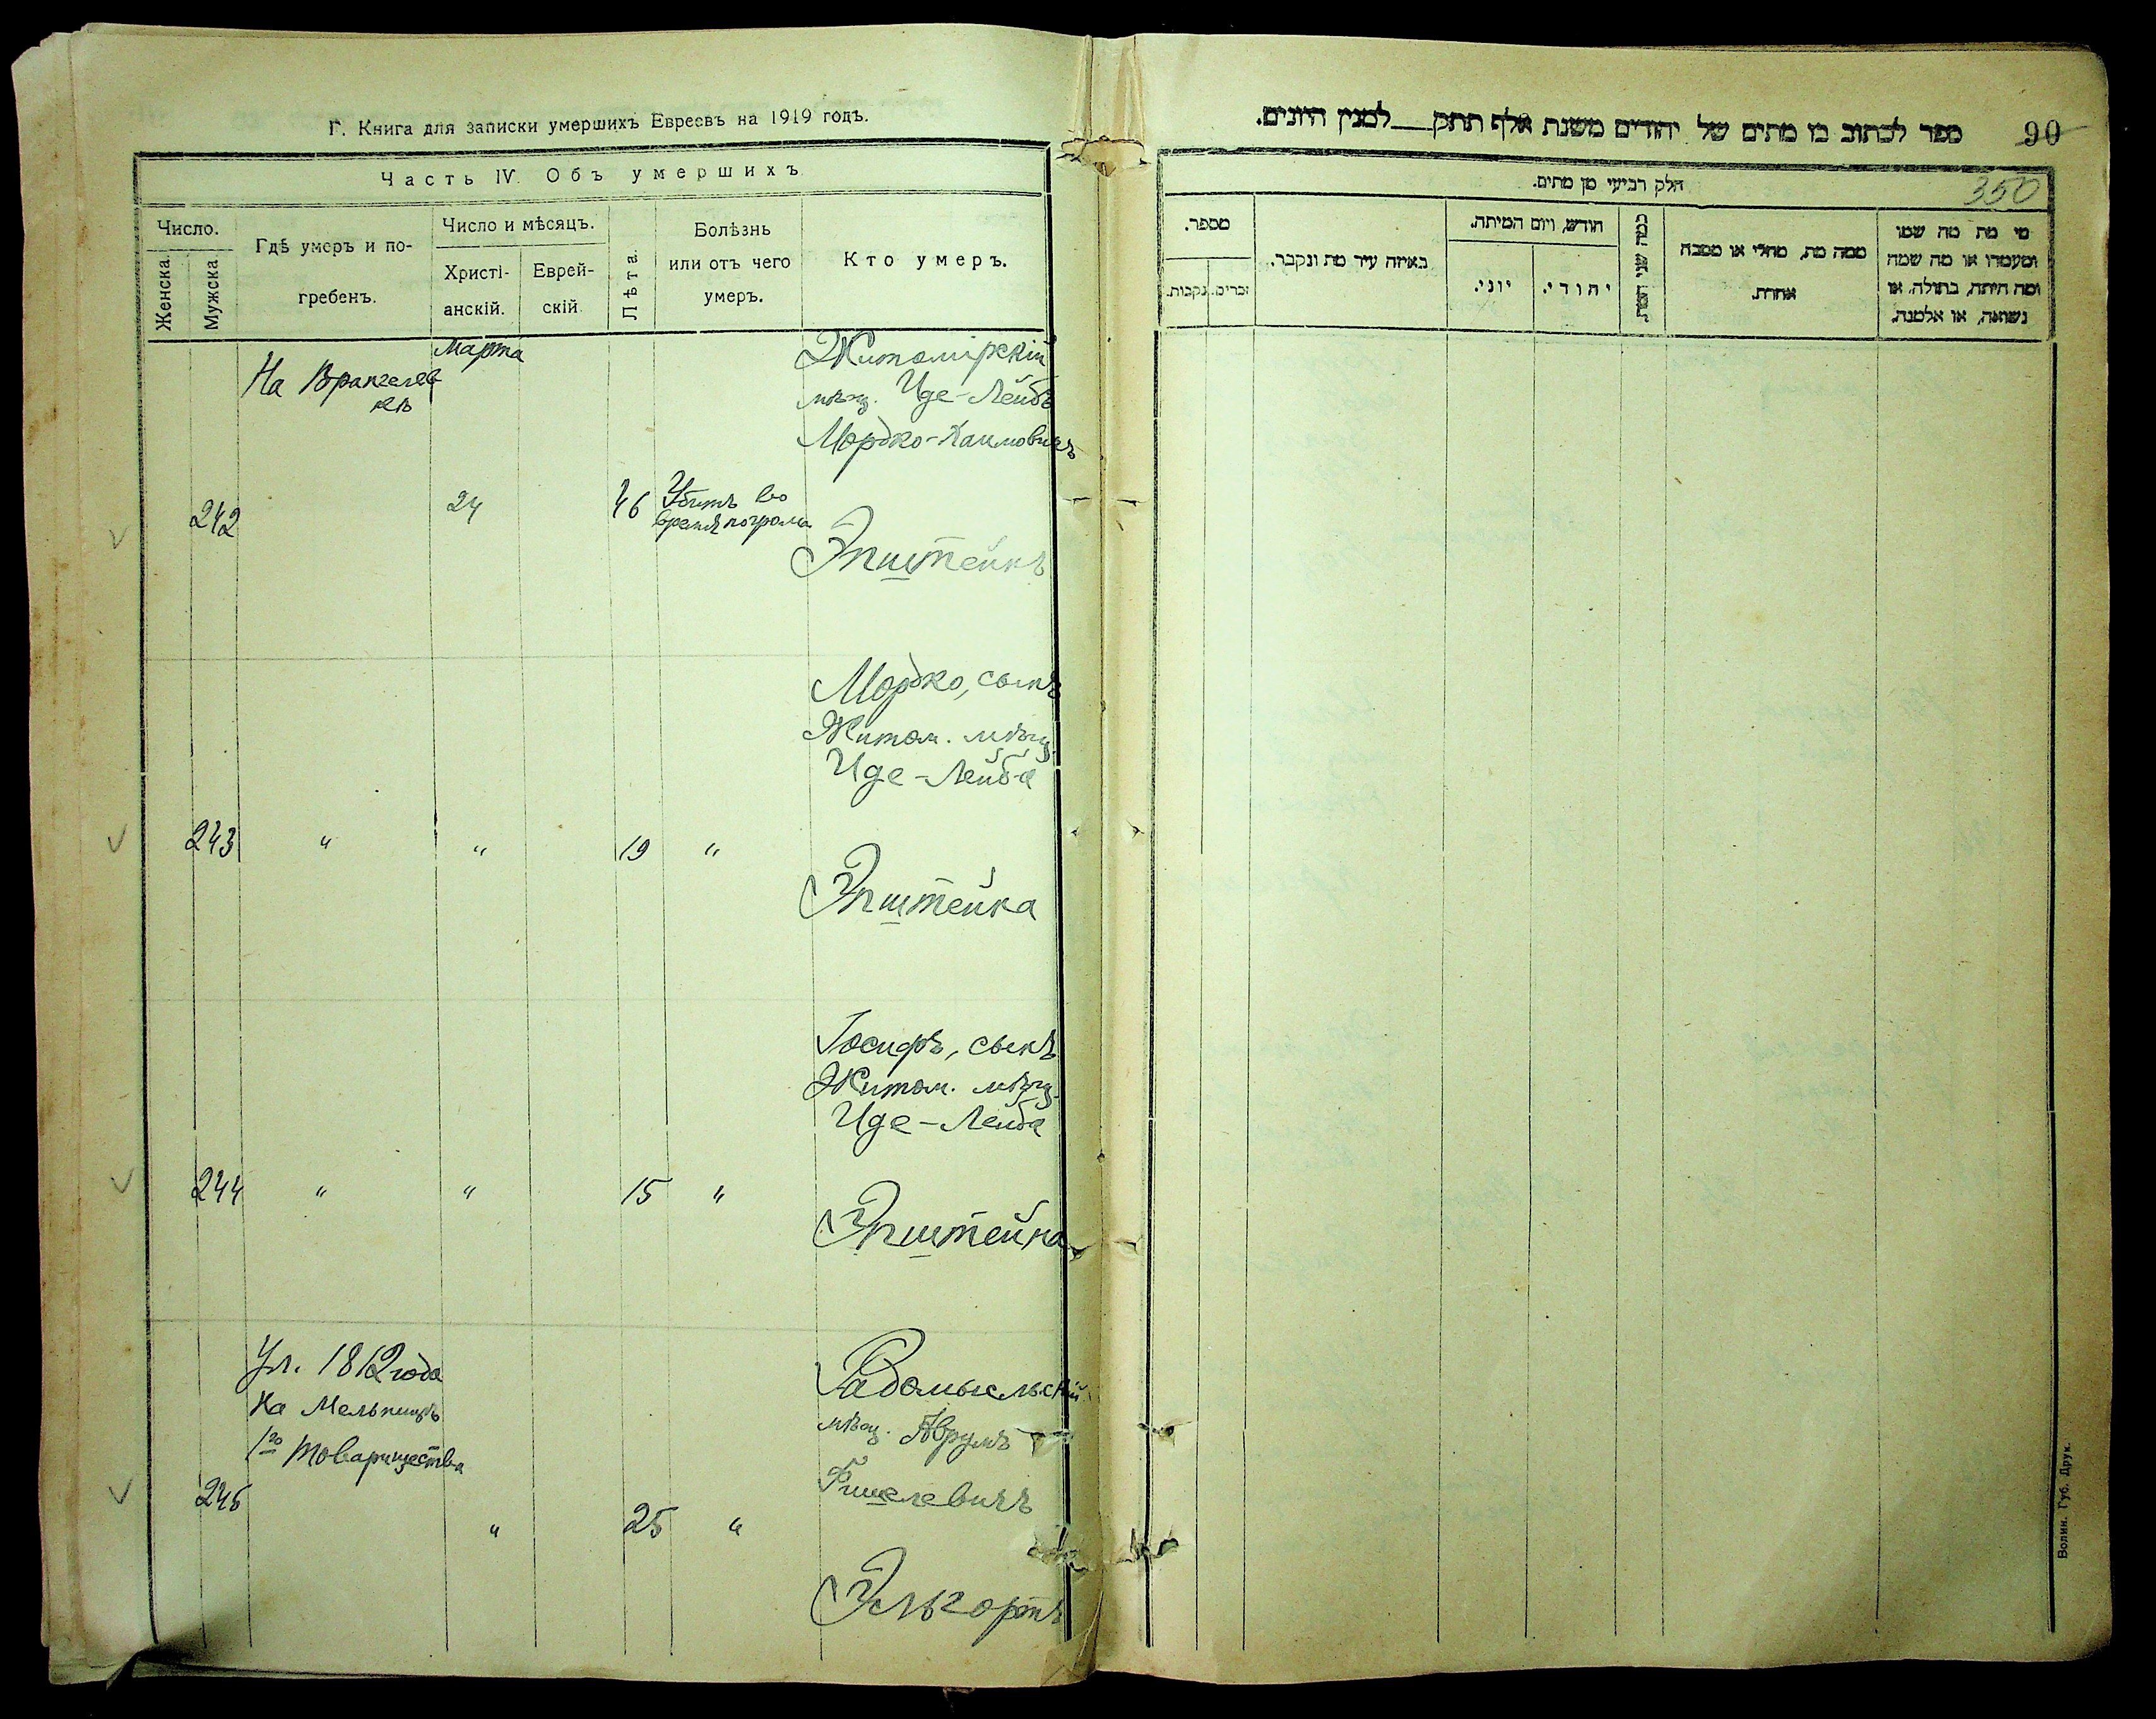 Г. Книга для записки умершихъ Евреевъ на 1919 годъ.
Часть IV. Объ умершихъ
Число.
Женска.
Мужска.
Гдѣ умеръ и по-
гребенъ.
Число и мѣсяцъ.
Христі-
анскій.
Еврей-
скій.
Лѣта.
Болѣзнь
или отъ чего
умеръ.
Кто умеръ.
На Врангелев-
кѣ
Марта
Житомірскій
мѣщ. Иде-Лейбъ
Мордко-Хаимовичъ
242
24
46
Убитъ во
время погрома
Эпштейнъ
Мордко, сынъ
Житом. мѣщ.
Иде-Лейба
243 " " 19 "
Эпштейна
Іосифъ, сынъ
Житом. мѣщ.
Иде-Лейба
244 " " 15 "
Эпштейна
Ул. 1812 года
На Мельницѣ
1го Товарищества
Радомысльскій
мѣщ. Аврумъ
Фишелевичъ
245 " 25 "
Эльгортъ
ספר לכתוב בו מתים של יהודים משנת אלף תתק למנין היונים.
90
350
חלק רביעי מן מתים.
מספר.
זכרים.
נקבות.
באיזה עיר מת ונקבר.
חודש, ויום המיתה.
יוני.
יהודי.
ממה מת, מחלי או מסבה
אחרת.
מי מת מה שמו
ומעמדו או מה שמה
ומה היתה, בתולה, או
נשואה, או אלמנה.
Волин. Губ. Друк.